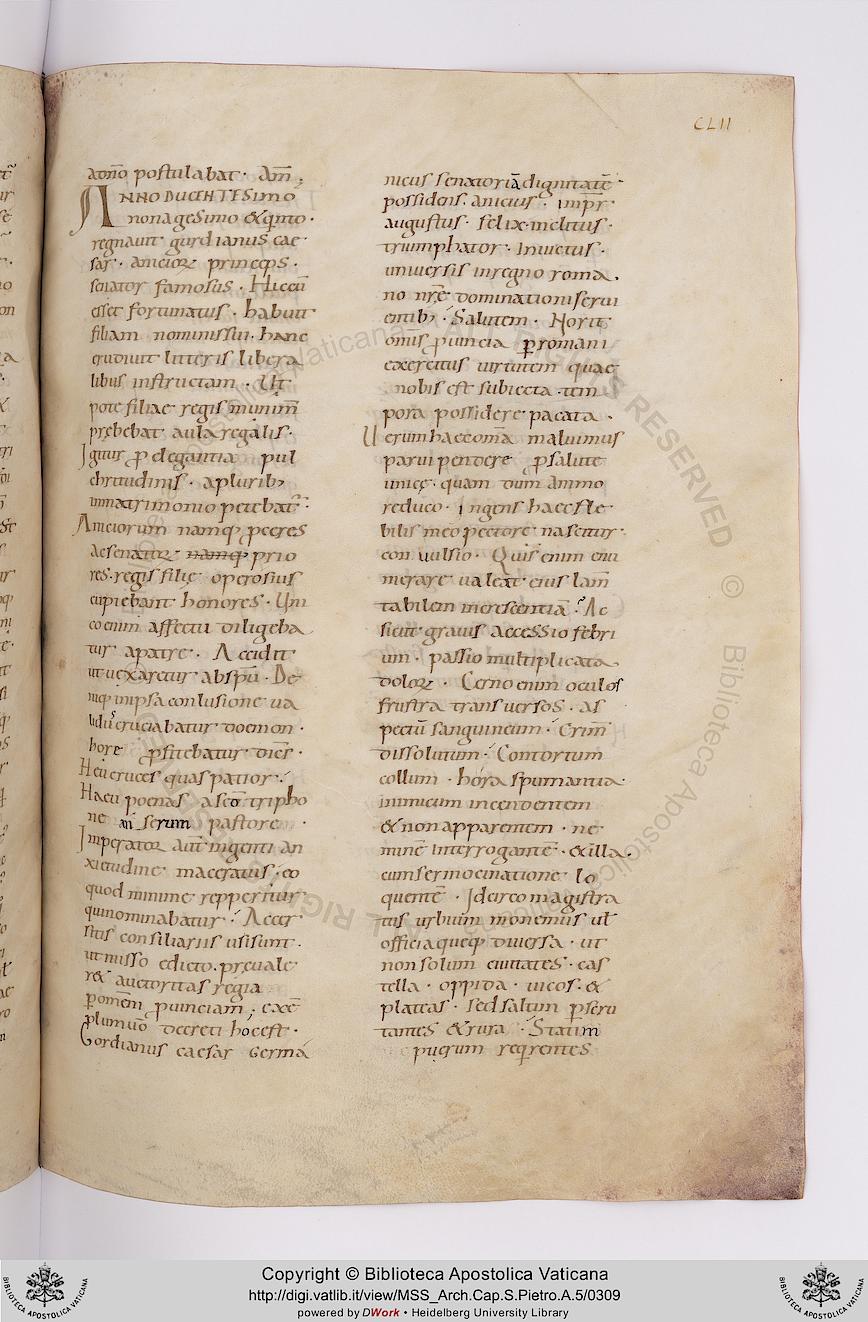 CLII
a dño postulabat · Am̄ ;
ANNO DUCENTESimo
nonagesimo & q̇nto ·
regnauit gordianus cae
sar · aniciorȝ princeps ·
senator famosus · Hic cū
esset fortunatus · habuit
filiam nomini sui · hanc
erudiuit litteris libera
libus instructam · Ut
pote filiae regis munim̄
prębebat aula regalis ·
Igitur ꝓ elegantia pul
chritudinis · a pluribȝ
in matrimonio petebat̄ ·
Aniciorum namq; proceres
ac senatorȝ namq; prio
res · regis filię operosius
cupiebant honores · Uni
co enim affectu diligeba
tur a patre · Accidit
ut uexaretur ab spū · De
niq; in ipsa conlusione ua
lidius cruciabatur doemon ·
hore profitebatur dicens ·
Heu cruces quas patior ·
Hacu poenas a sc̄o tripho
ne anserum pastore ·
Imperator aut̄ ingenti an
xietudine maceratus · eo
quod minime repperitur
qui nominabatur · Accer
sitis consiliariis uisi sunt ·
ut misso edicto · pręuale
ret auctoritas regia
ꝑ omnē ꝓuinciam ; exē
plum uō decreti hoc est ·
Gordianus caesar germa
nicus senatoriā dignitatē ·
possidens · anicius · imp̄r ·
augustus · felix · inclitus ·
triumphator · Inuictus ·
uniuersis in regno roma
no nrę̄ dominationi serui
entibȝ · Salutem · Norit
omīs ꝓuincia ꝑ romani
exercitus uirtutem quae
nobis est subiecta · tem
pora possidere pacata ·
Uerum haec om̄a maluimus
parui pendere ꝓ salute
unicę · quam dum animo
reduco · Ingens haec fle
bilis meo pectore nascitur
conuulsio · Quis enim enu
merare ualeat eius lam̄
tabilem increscentiā · Ac
sicut grauis accessio febri
um · passio multiplicata
dolorȝ · Cerno enim oculos
frustra transuersos · As
pectū sanguineum · Crim̄
dissolutum · Contortum
collum · hora spumantia
inimicum incendentem
& non apparentem · ne
mine interrogante · & illa
cum sermocinatione lo
quente · Idcirco magistra
tus urbium monemus ut
officia queq; diuersa · ut
non solum ciuitates · cas
tella · oppida · uicos · &
plateas · sed saltim ꝑscru
tantes & rura · Statim
puerum req̇rentes
Copyright © Biblioteca Apostolica Vaticana
http://digi.vatlib.it/view/MSS_Arch.Cap.S.Pietro.A.5/0309
powered by DWork • Heidelberg University Library